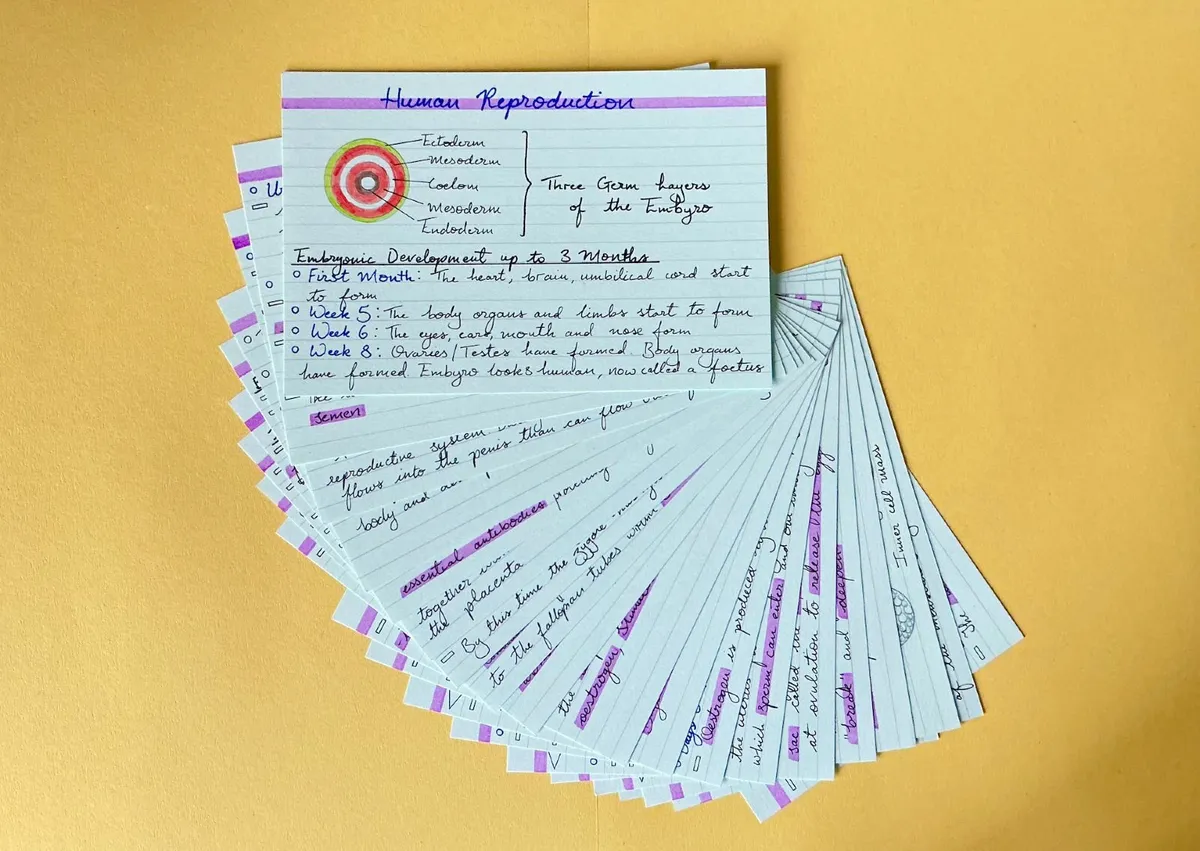 Human Reproduction
Ectoderm
Mesoderm
Coelom
Mesoderm
Endoderm
Three Germ Layers
of the Embyro
Embryonic Development up to 3 Months
First Month: The heart, brain, umbilical cord start
to form
Week 5: The body organs and limbs start to form
Week 6: The eyes, ears, mouth and nose form
Week 8: Ovaries/Testes have formed. Body organs
have formed. Embyro looks human, now called a foetus
semen
reproductive system
flows into the penis than can flow
body and
essential antibodies
together
the placenta
By this time the zygote
to the fallopian tubes
the
oestrogen,
Days
Oestrogen is produced
the uterus
which sperm can enter and
sac called
at ovulation to release the egg
"break" and deepen
Inner cell mass
of the
The